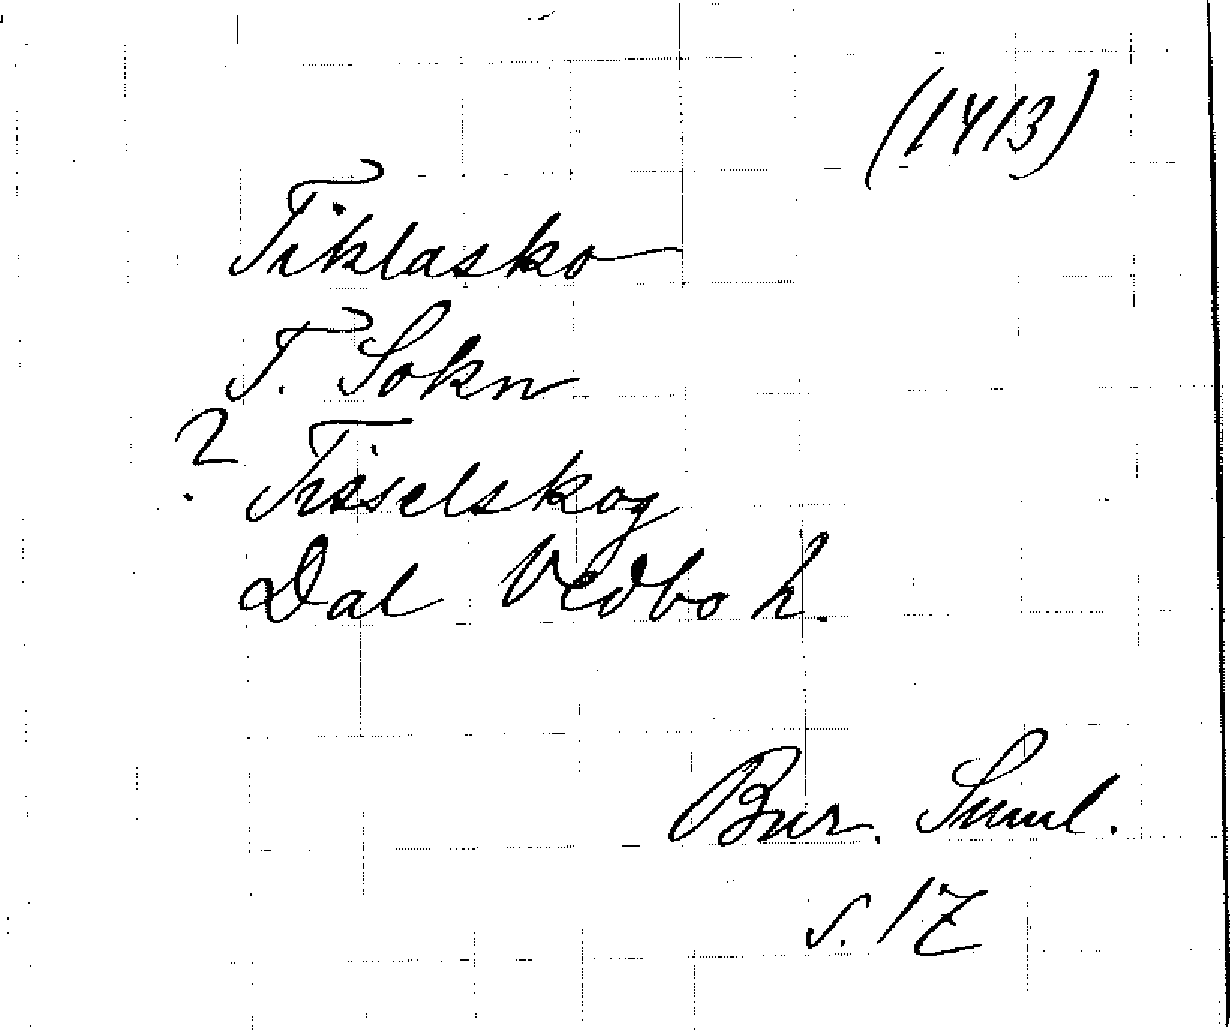 (1413)
Tiklasko
T. Sokn
? Tisselskog
Dal Vedbo h.
Bur. Suml.
s. 17